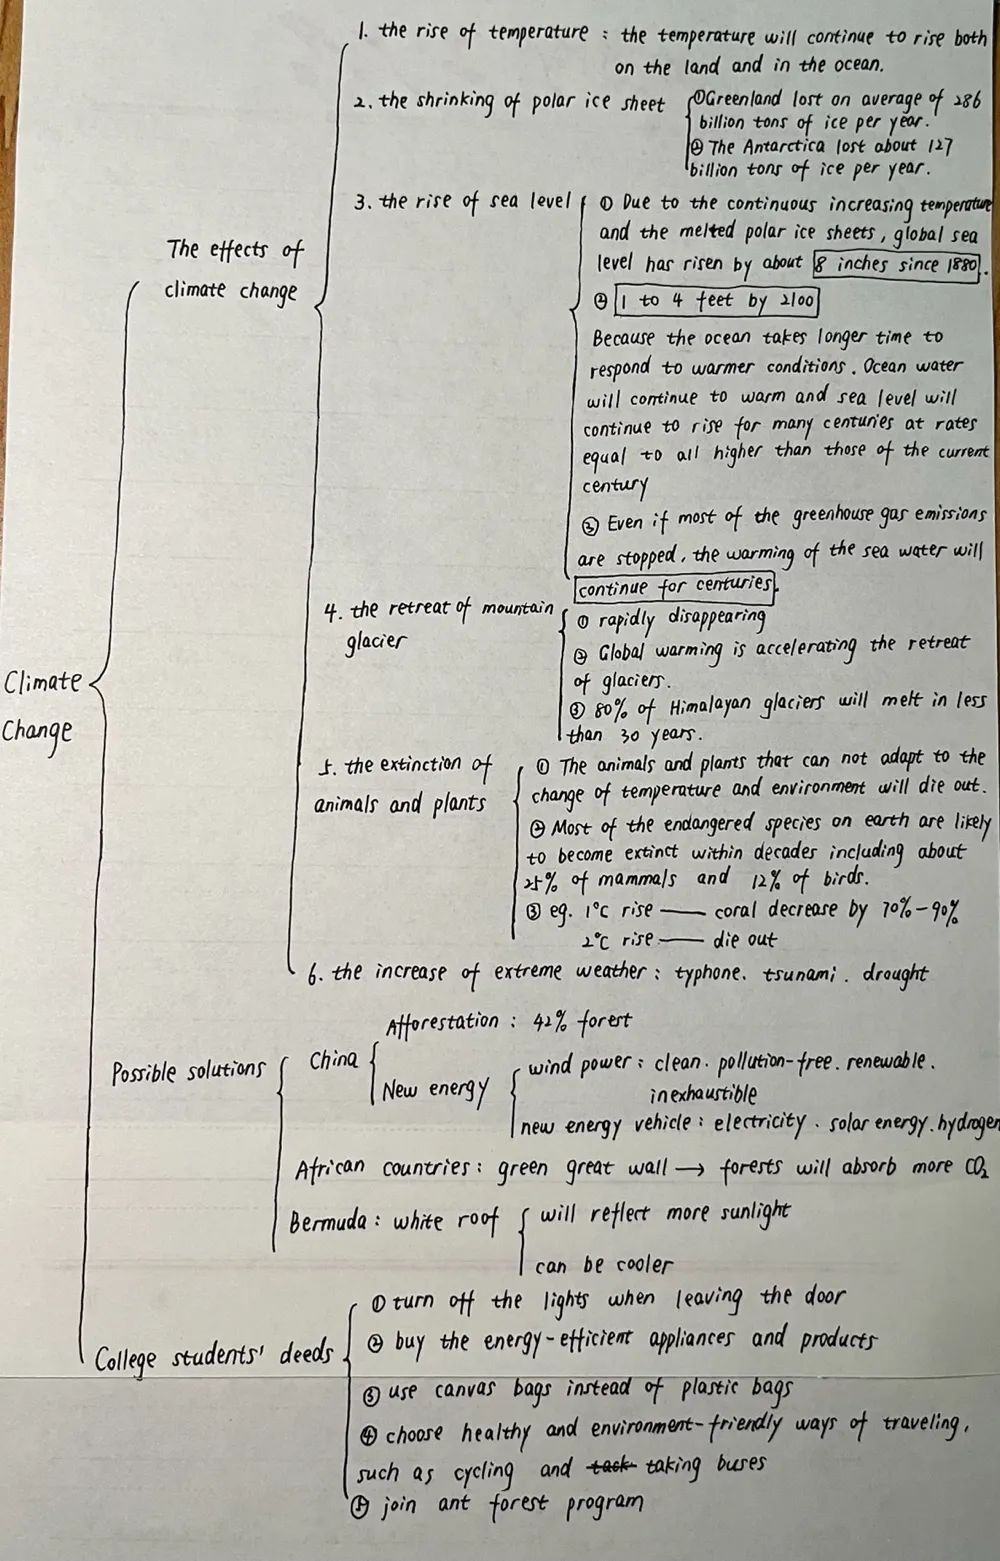 1. the rise of temperature : the temperature will continue to rise both
on the land and in the ocean.
2. the shrinking of polar ice sheet
① Greenland lost on average of 286
billion tons of ice per year.
② The Antarctica lost about 127
billion tons of ice per year.
3. the rise of sea level
① Due to the continuous increasing temperature
and the melted polar ice sheets, global sea
level has risen by about 8 inches since 1880.
② 1 to 4 feet by 2100
Because the ocean takes longer time to
respond to warmer conditions. Ocean water
will continue to warm and sea level will
continue to rise for many centuries at rates
equal to all higher than those of the current
century
③ Even if most of the greenhouse gas emissions
are stopped, the warming of the sea water will
continue for centuries.
The effects of
climate change
4. the retreat of mountain
glacier
① rapidly disappearing
② Global warming is accelerating the retreat
of glaciers.
③ 80% of Himalayan glaciers will melt in less
than 30 years.
Climate
Change
5. the extinction of
animals and plants
① The animals and plants that can not adapt to the
change of temperature and environment will die out.
② Most of the endangered species on earth are likely
to become extinct within decades including about
25% of mammals and 12% of birds.
③ eg. 1°C rise —— coral decrease by 70%-90%
2°C rise —— die out
6. the increase of extreme weather : typhone. tsunami. drought
Possible solutions
China
Afforestation : 42% forest
New energy
wind power : clean. pollution-free. renewable.
inexhaustible
new energy vehicle : electricity. solar energy. hydrogen
African countries : green great wall → forests will absorb more CO₂
Bermuda : white roof
will reflect more sunlight
can be cooler
College students' deeds
① turn off the lights when leaving the door
② buy the energy-efficient appliances and products
③ use canvas bags instead of plastic bags
④ choose healthy and environment-friendly ways of traveling,
such as cycling and taking buses
⑤ join ant forest program